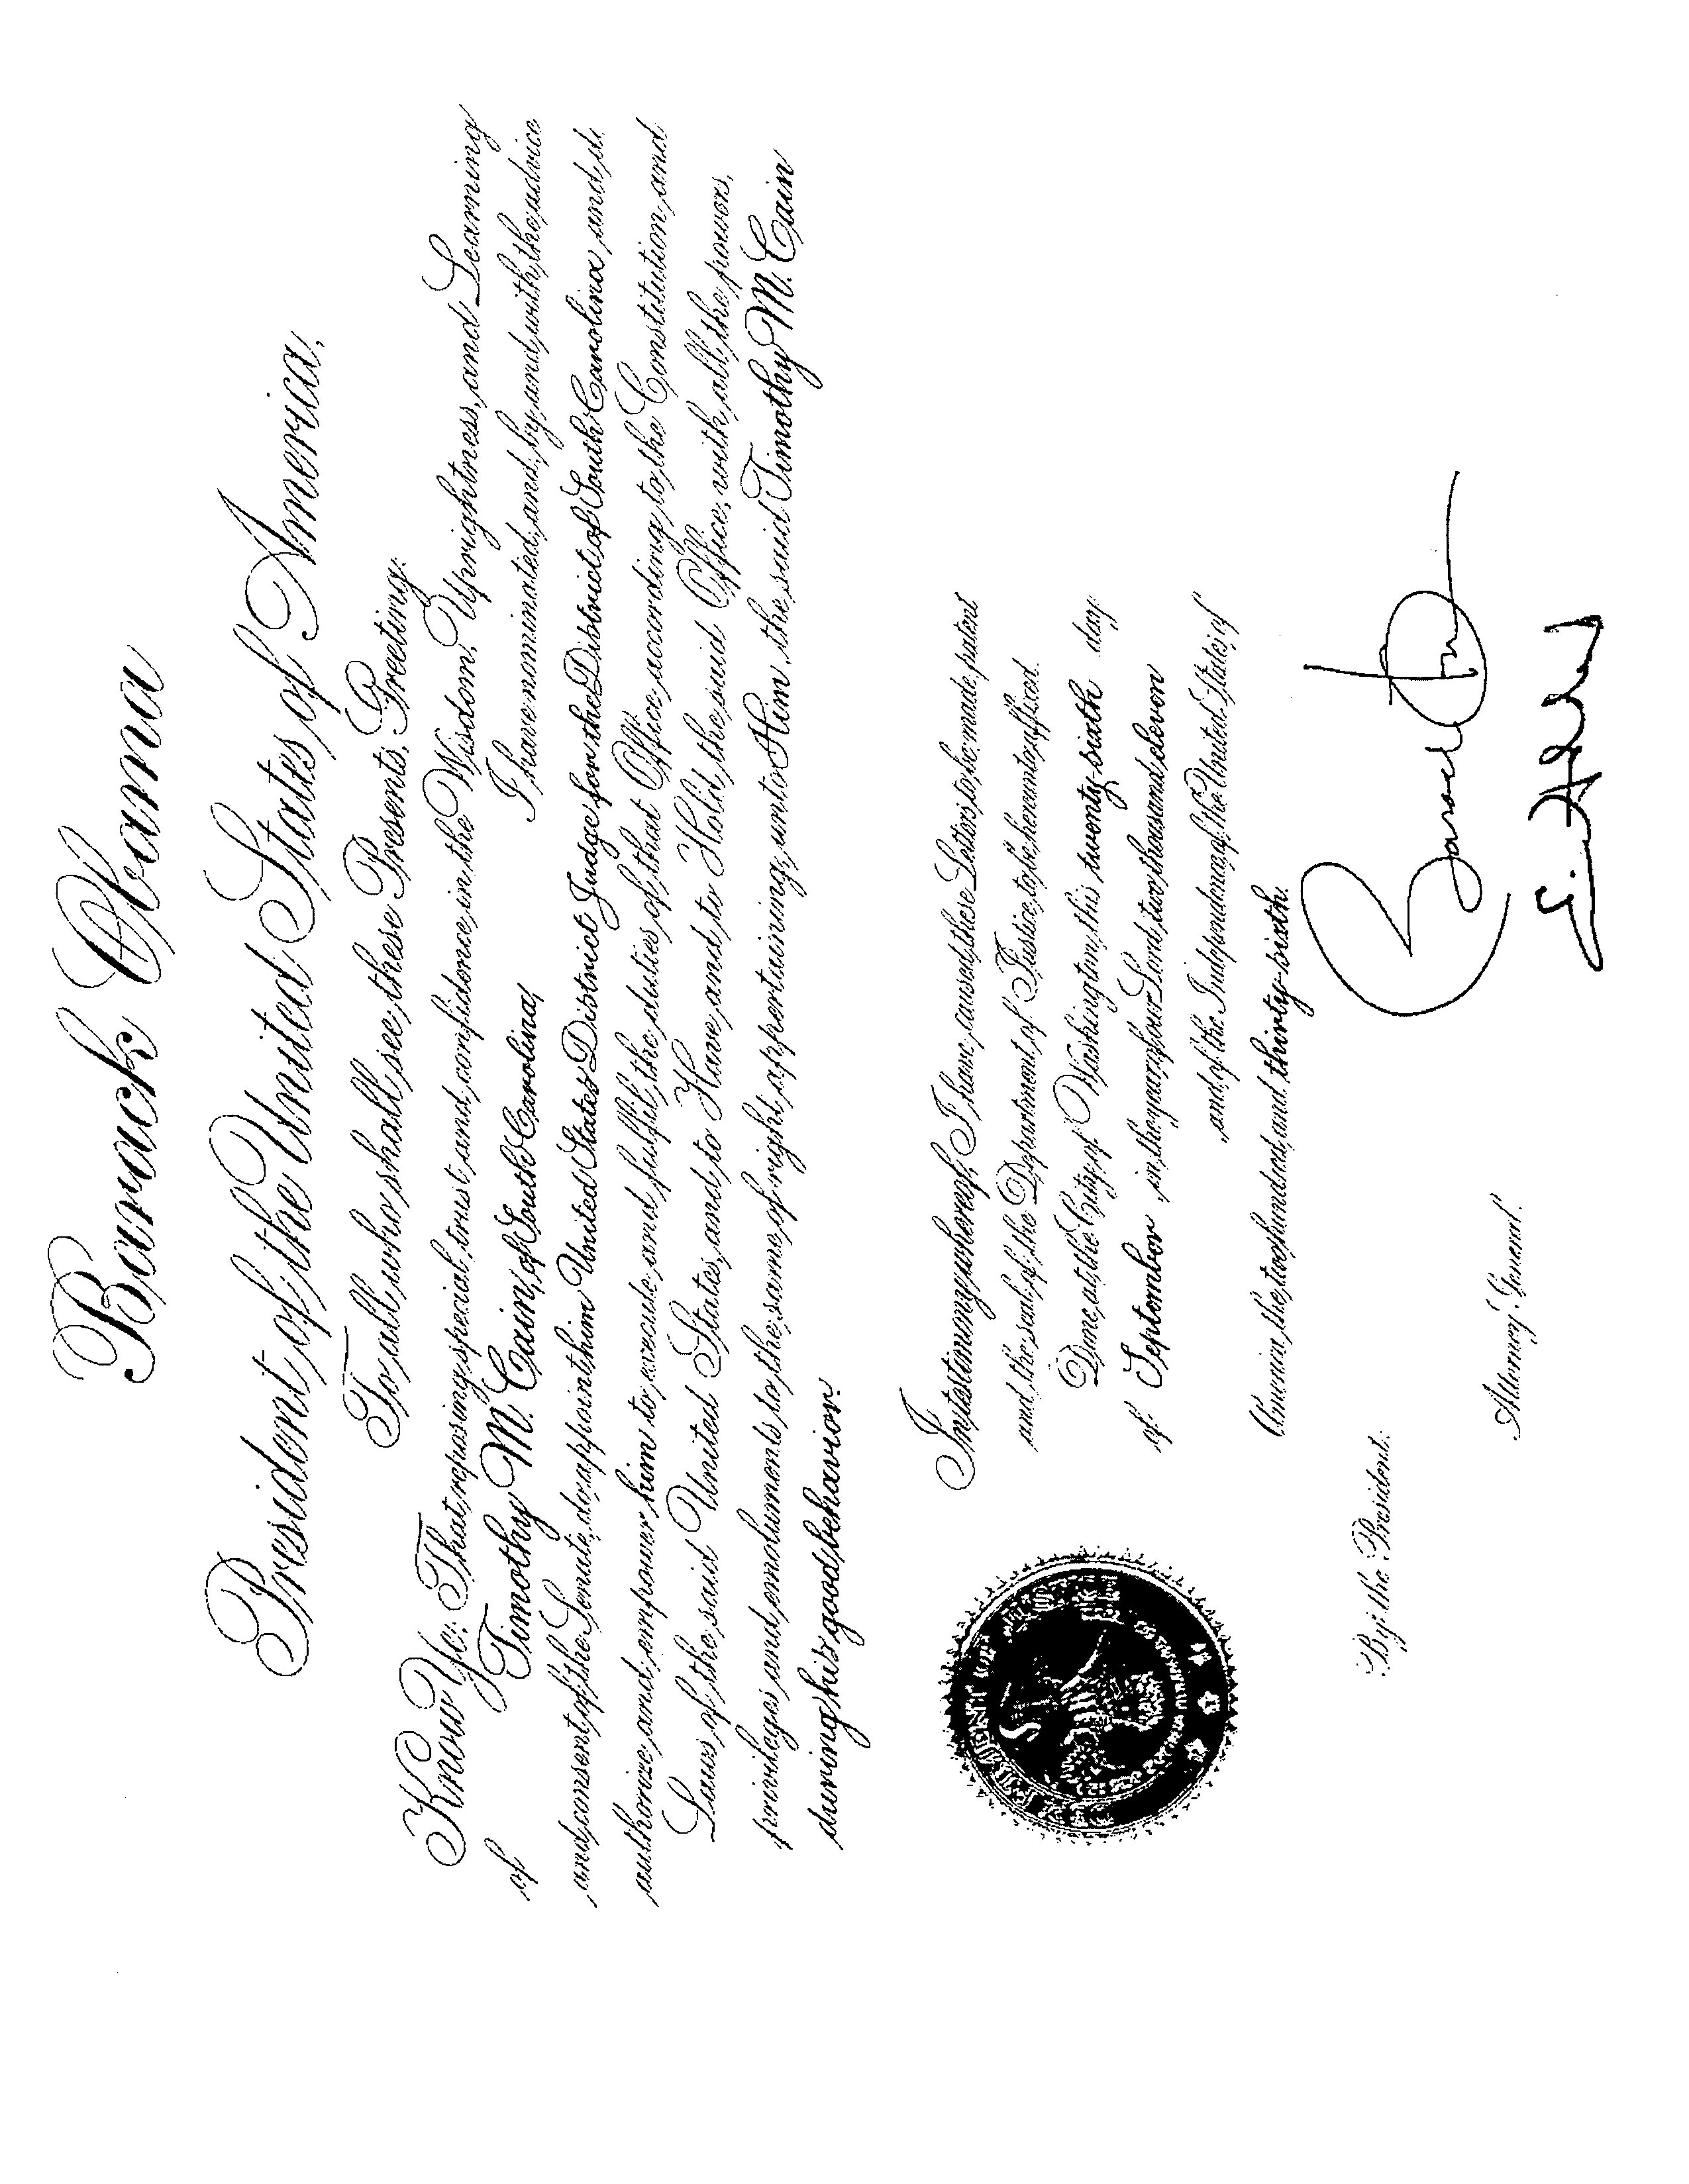 Barack Obama
President of the United States of America,
To all who shall see these Presents, Greeting:
Know Ye: That, reposing special trust and confidence in the Wisdom, Uprightness, and Learning
of Timothy M. Cain, of South Carolina, I have nominated, and, by and with the advice
and consent of the Senate, do appoint him United States District Judge for the District of South Carolina and do
authorize and empower him to execute and fulfil the duties of that Office according to the Constitution and
Laws of the said United States, and to Have and to Hold the said Office, with all the powers,
privileges and emoluments to the same of right appertaining, unto Him the said Timothy M. Cain
during his good behavior.
In testimony whereof, I have caused these Letters to be made patent
and the seal of the Department of Justice to be hereunto affixed.
Done at the City of Washington, this twenty-sixth day
of September in the year of our Lord two thousand eleven
and of the Independence of the United States of
America the two hundred and thirty-sixth.
DEPARTMENT OF JUSTICE
By the President:
Attorney General.